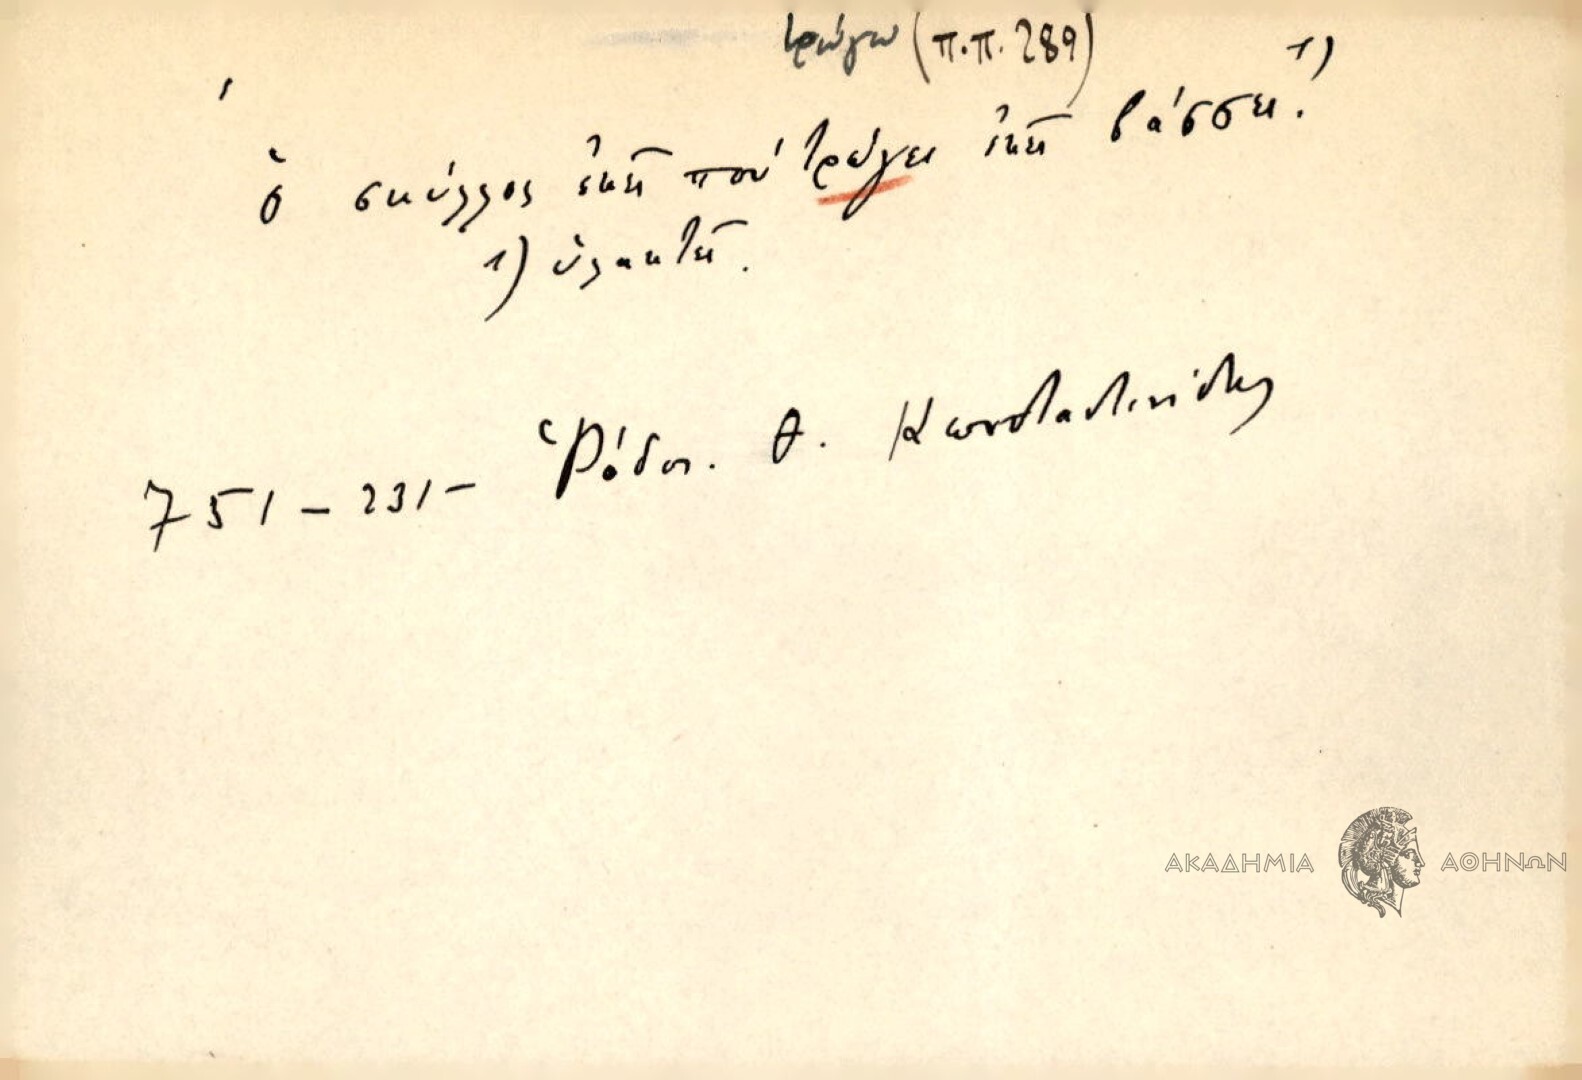 τρώγω (π.π. 289)
ὁ σκύλλος ἐκεῖ πού τρώγει ἐκεῖ βάσσει. 1)
1) ὑλακτεῖ.
751 - 231 - Ῥόδος. Θ. Κωνσταντινίδης
ΑΚΑΔΗΜΙΑ ΑΘΗΝΩΝ